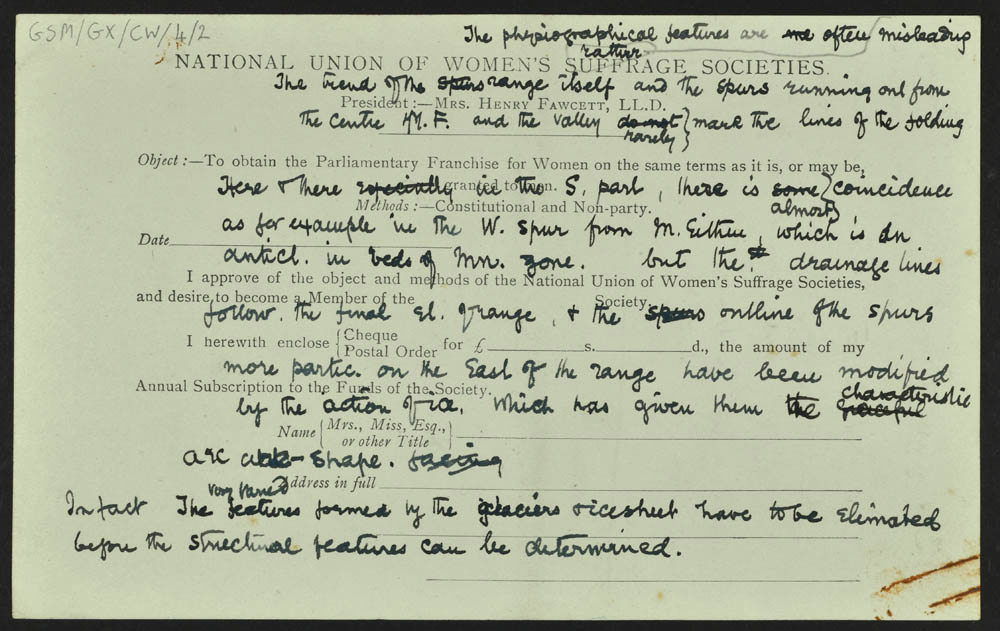 GSM/GX/CW/4/2
The physiographical features are often misleading
rather
NATIONAL UNION OF WOMEN'S SUFFRAGE SOCIETIES.
The trend of the spurs range itself and the spurs running out from
President:—MRS. HENRY FAWCETT, LL.D.
the centre M.F. and the valley do not mark the lines of the folding
rarely
Object:—To obtain the Parliamentary Franchise for Women on the same terms as it is, or may be,
granted to men.
Here & there especially in the S. part, there is some coincidence
almost
Methods:—Constitutional and Non-party.
as for example in the W. spur from M. Eithin, which is an
Date
anticl. in beds of Mn. zone. but the drainage lines
I approve of the object and methods of the National Union of Women's Suffrage Societies,
and desire to become a Member of the Society.
follow the final el. of range, & the spurs outline of the spurs
I herewith enclose {Cheque
Postal Order for £ s. d., the amount of my
more partic. on the East of the range have been modified
Annual Subscription to the Funds of the Society.
characteristic
by the action of ice, which has given them the graceful
Name {Mrs., Miss, Esq.,
or other Title
arc shape. facing
Address in full
very varied
In fact The features formed by the glaciers & icesheet have to be elimated
before the structural features can be determined.